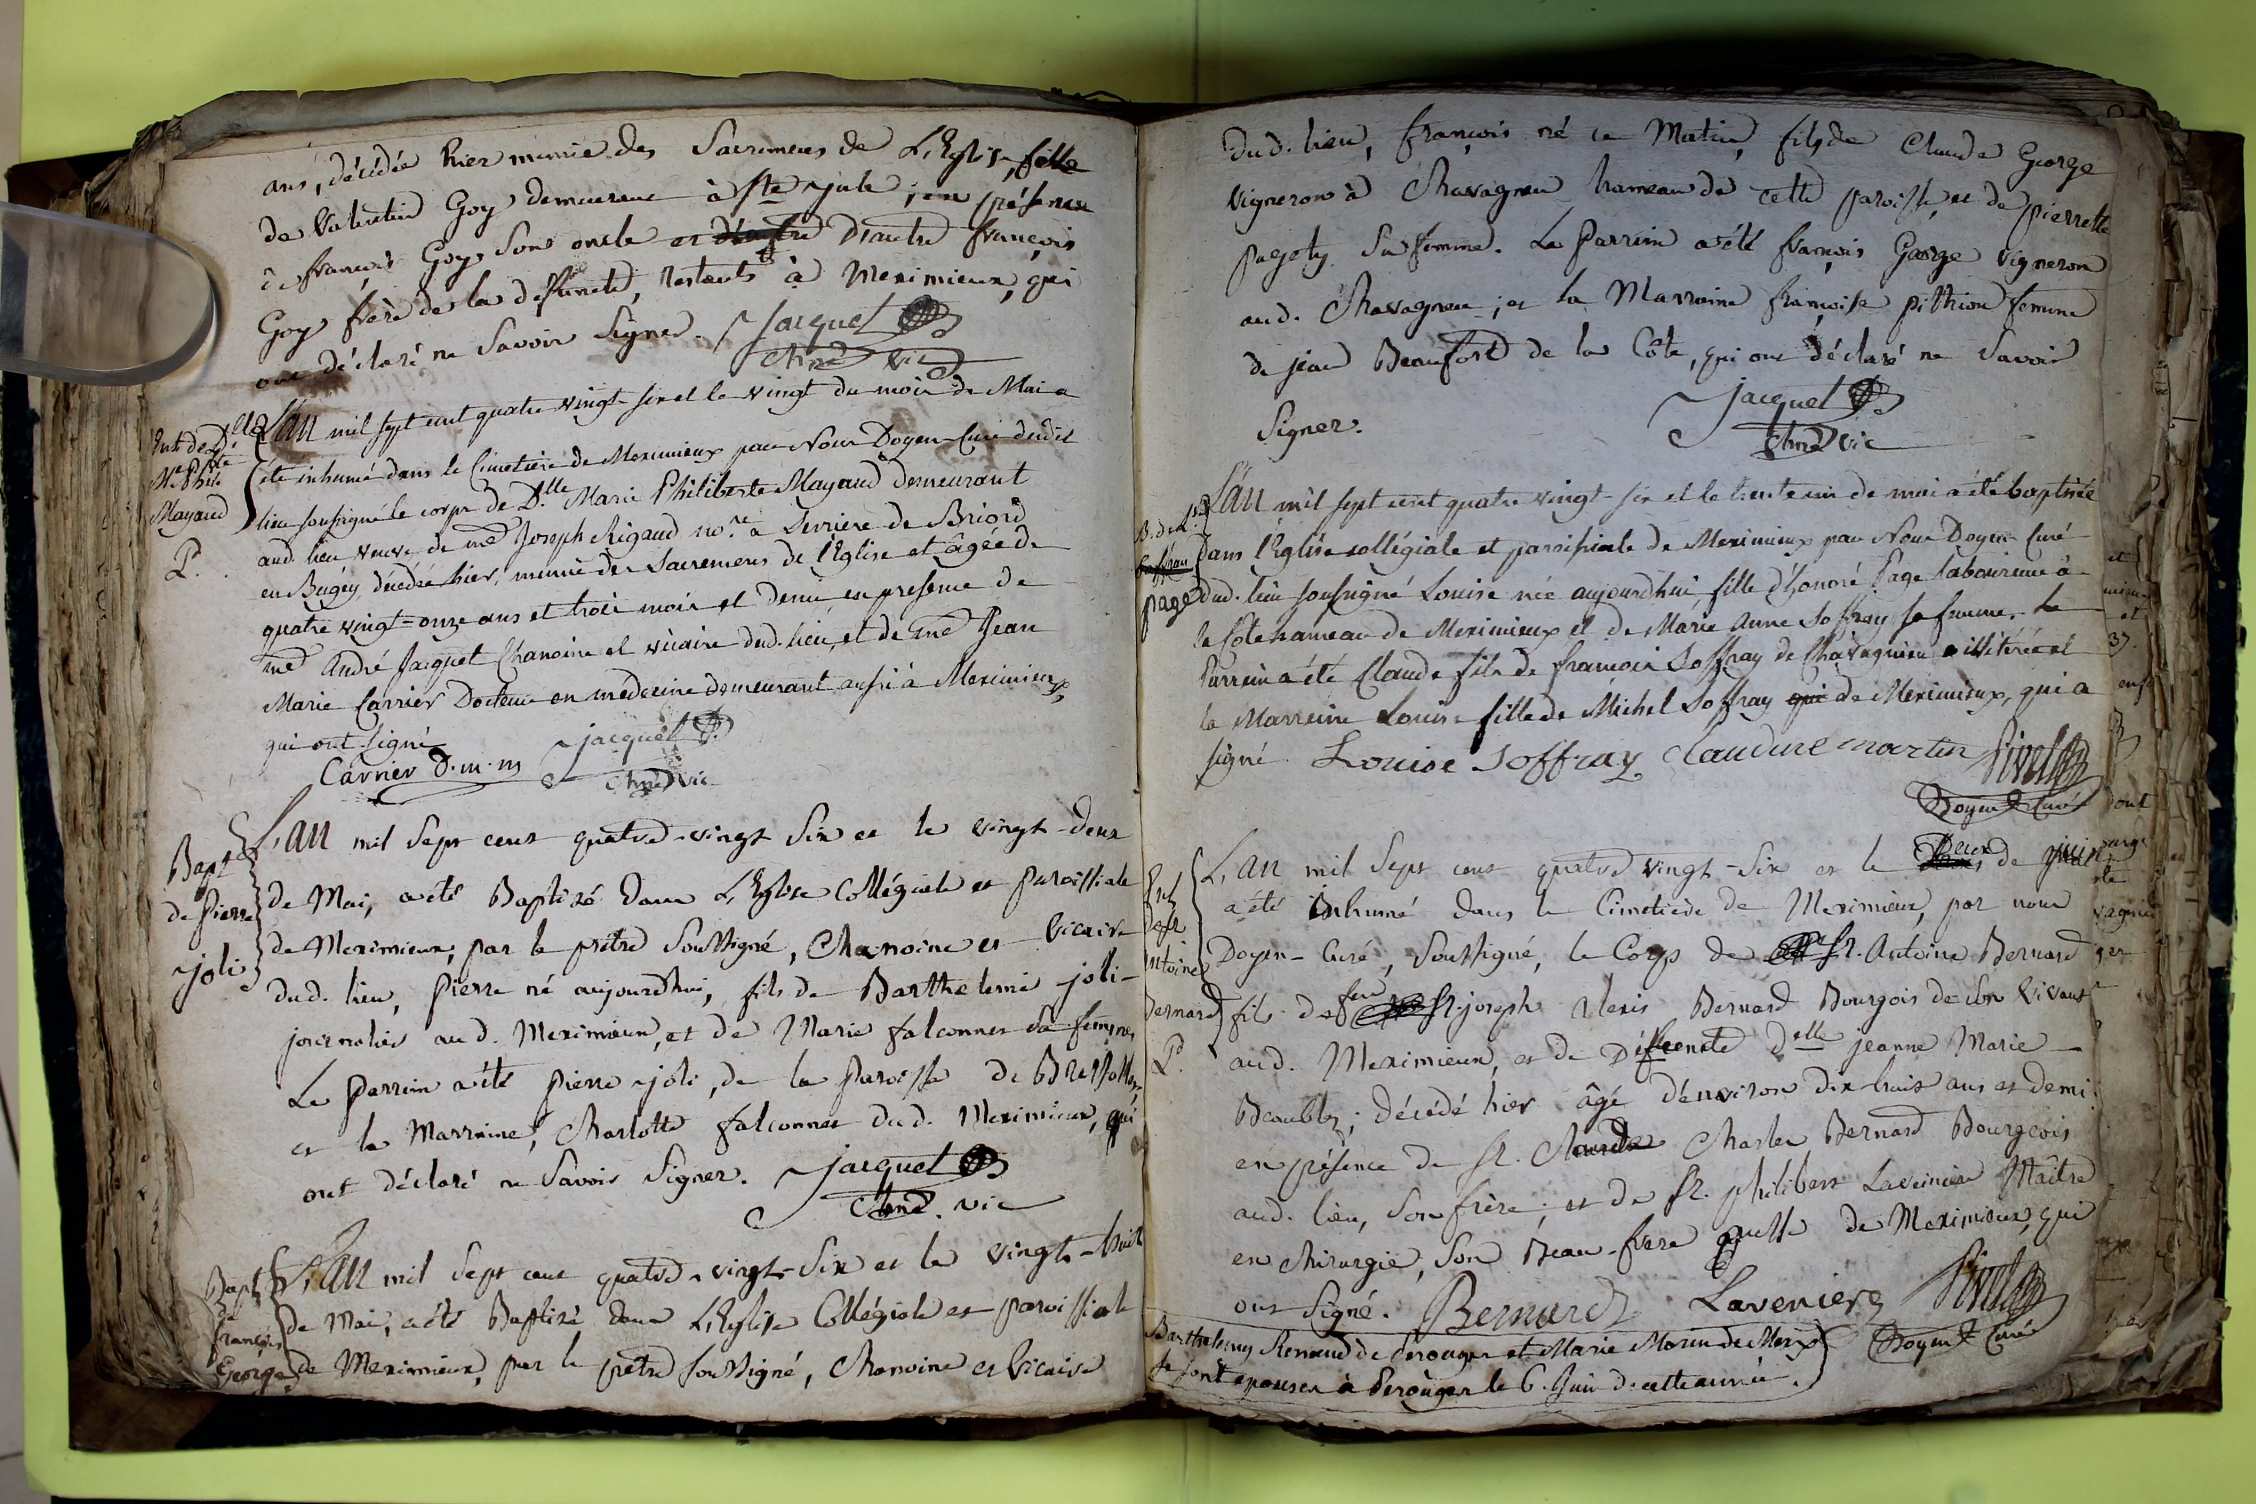 ans, décédée hier munie des Sacremens de L'Eglise, fille
de Valentin Goy demeurant à Ste jule ; en présence
de françois Goy son oncle et d'autre D'autre françois
Goy frère de la deffuncte, restants à Meximieux, qui
ont déclaré ne Savoir Signer. Jacquet
chne vic
Ent. de Dlle
Me Phite
Mayaud
P.
L'An mil sept cent quatre vingt-six et le vingt du mois de Mai a
été inhumé dans le Cimetière de Meximieux par Nous Doyen-Curé dudit
lieu soussigné le corps de Dlle Marie Philiberte Mayaud demeurant
aud. lieu veuve de me Joseph Rigaud nore à Serriere de Briord
en Bugey, décédée hier, munie des Sacremens de l'Eglise et âgée de
quatre vingt-onze ans et trois mois et demi en presence de
me André Jacquet Chanoine et vicaire dud. lieu, et de me Jean
Marie Carrier Docteur en médecine demeurant aussi à Meximieux,
qui ont signé
Carrier D.m.m Jacquet
chne vic
Bapt
de Pierre
joli
L'An mil Sept cent quatre-vingt Six et le vingt-deux
de Mai, a été Baptisé dans L'Eglise Collégiale et paroissiale
de Meximieux, par le prêtre Soussigné, Chanoine et Vicaire
dud. lieu, Pierre né aujourdhui, fils de Barthelemi joli-
journalier aud. Meximieux, et de Marie falconnet sa femme,
Le Parrain a été pierre joli, de la paroisse de Bressolles,
et la Marraine, Charlotte falconnet dud. Meximieux, qui
ont déclaré ne Savoir Signer. Jacquet
chne. vic
Bapt
de
françois
George
L'An mil Sept cent quatre-vingt-Six et le vingt-huit
de Mai, a été Baptisé dans L'Eglise Collégiale et paroissiale
de Meximieux, par le prêtre soussigné, Chanoine et Vicaire
dud. lieu, françois né ce Matin, fils de Claude George
Vigneron à Chavagneu hameau de cette paroisse, et de pierrette
pagety Sa femme. Le Parrain a été françois George Vigneron
aud. Chavagneu ; et la Marraine françoise pithion femme
de jean Beaufort de la Côte, qui ont déclaré ne Savoir
Signer. Jacquet
chne vic
B. de Lse
Soffray
page
L'An mil sept cent quatre vingt-six et le trente un de mai a été baptisée
dans l'Eglise collégiale et paroissiale de Meximieux par Nous Doyen-Curé
dud. lieu soussigné Louise née aujourdhui, fille d'honoré Page laboureur à
la Côte hameau de Meximieux et de Marie Anne Soffray sa femme. Le
Parrain a été Claude fils de francois Soffray de Chavagnieu illitéré et
la Marreine Louise fille de Michel Soffray qui de Meximieux, qui a
signé Louise Soffray Claudine martin Rivet
Doyen-Curé
Ent
de Sr
Antoine
Bernard
P.
L'An mil Sept cent quatre vingt-Six et le Deux de juin
a été Inhumé dans le Cimetière de Meximieux, par nous
Doyen-Curé, Soussigné, le Corps de Sr. Antoine Bernard
fils de feu Sr. joseph Alexis Bernard Bourgois de son Vivant
aud. Meximieux, et de Déffuncte Delle jeanne Marie
Beaublez ; décédé hier âgé d'environ dix-huit ans et demi
en présence de Sr. Claude Charles Bernard Bourgeois
aud. lieu, Son frère ; et de Sr. philibert Laveniere Maître
en Chirurgie, Son Beau-frere de Meximieux, qui
ont Signé. Bernard Laveniere Rivet
Doyen-Curé
Barthelemy Renaud de Perouges et Marie Morin de Mexx
se sont epousés à Perouges le 6. Juin de cette année.